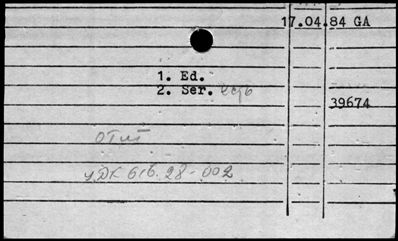 17.04.84 GA
1. Ed.
2. Ser.
39674
отит
УДК 616.28-002